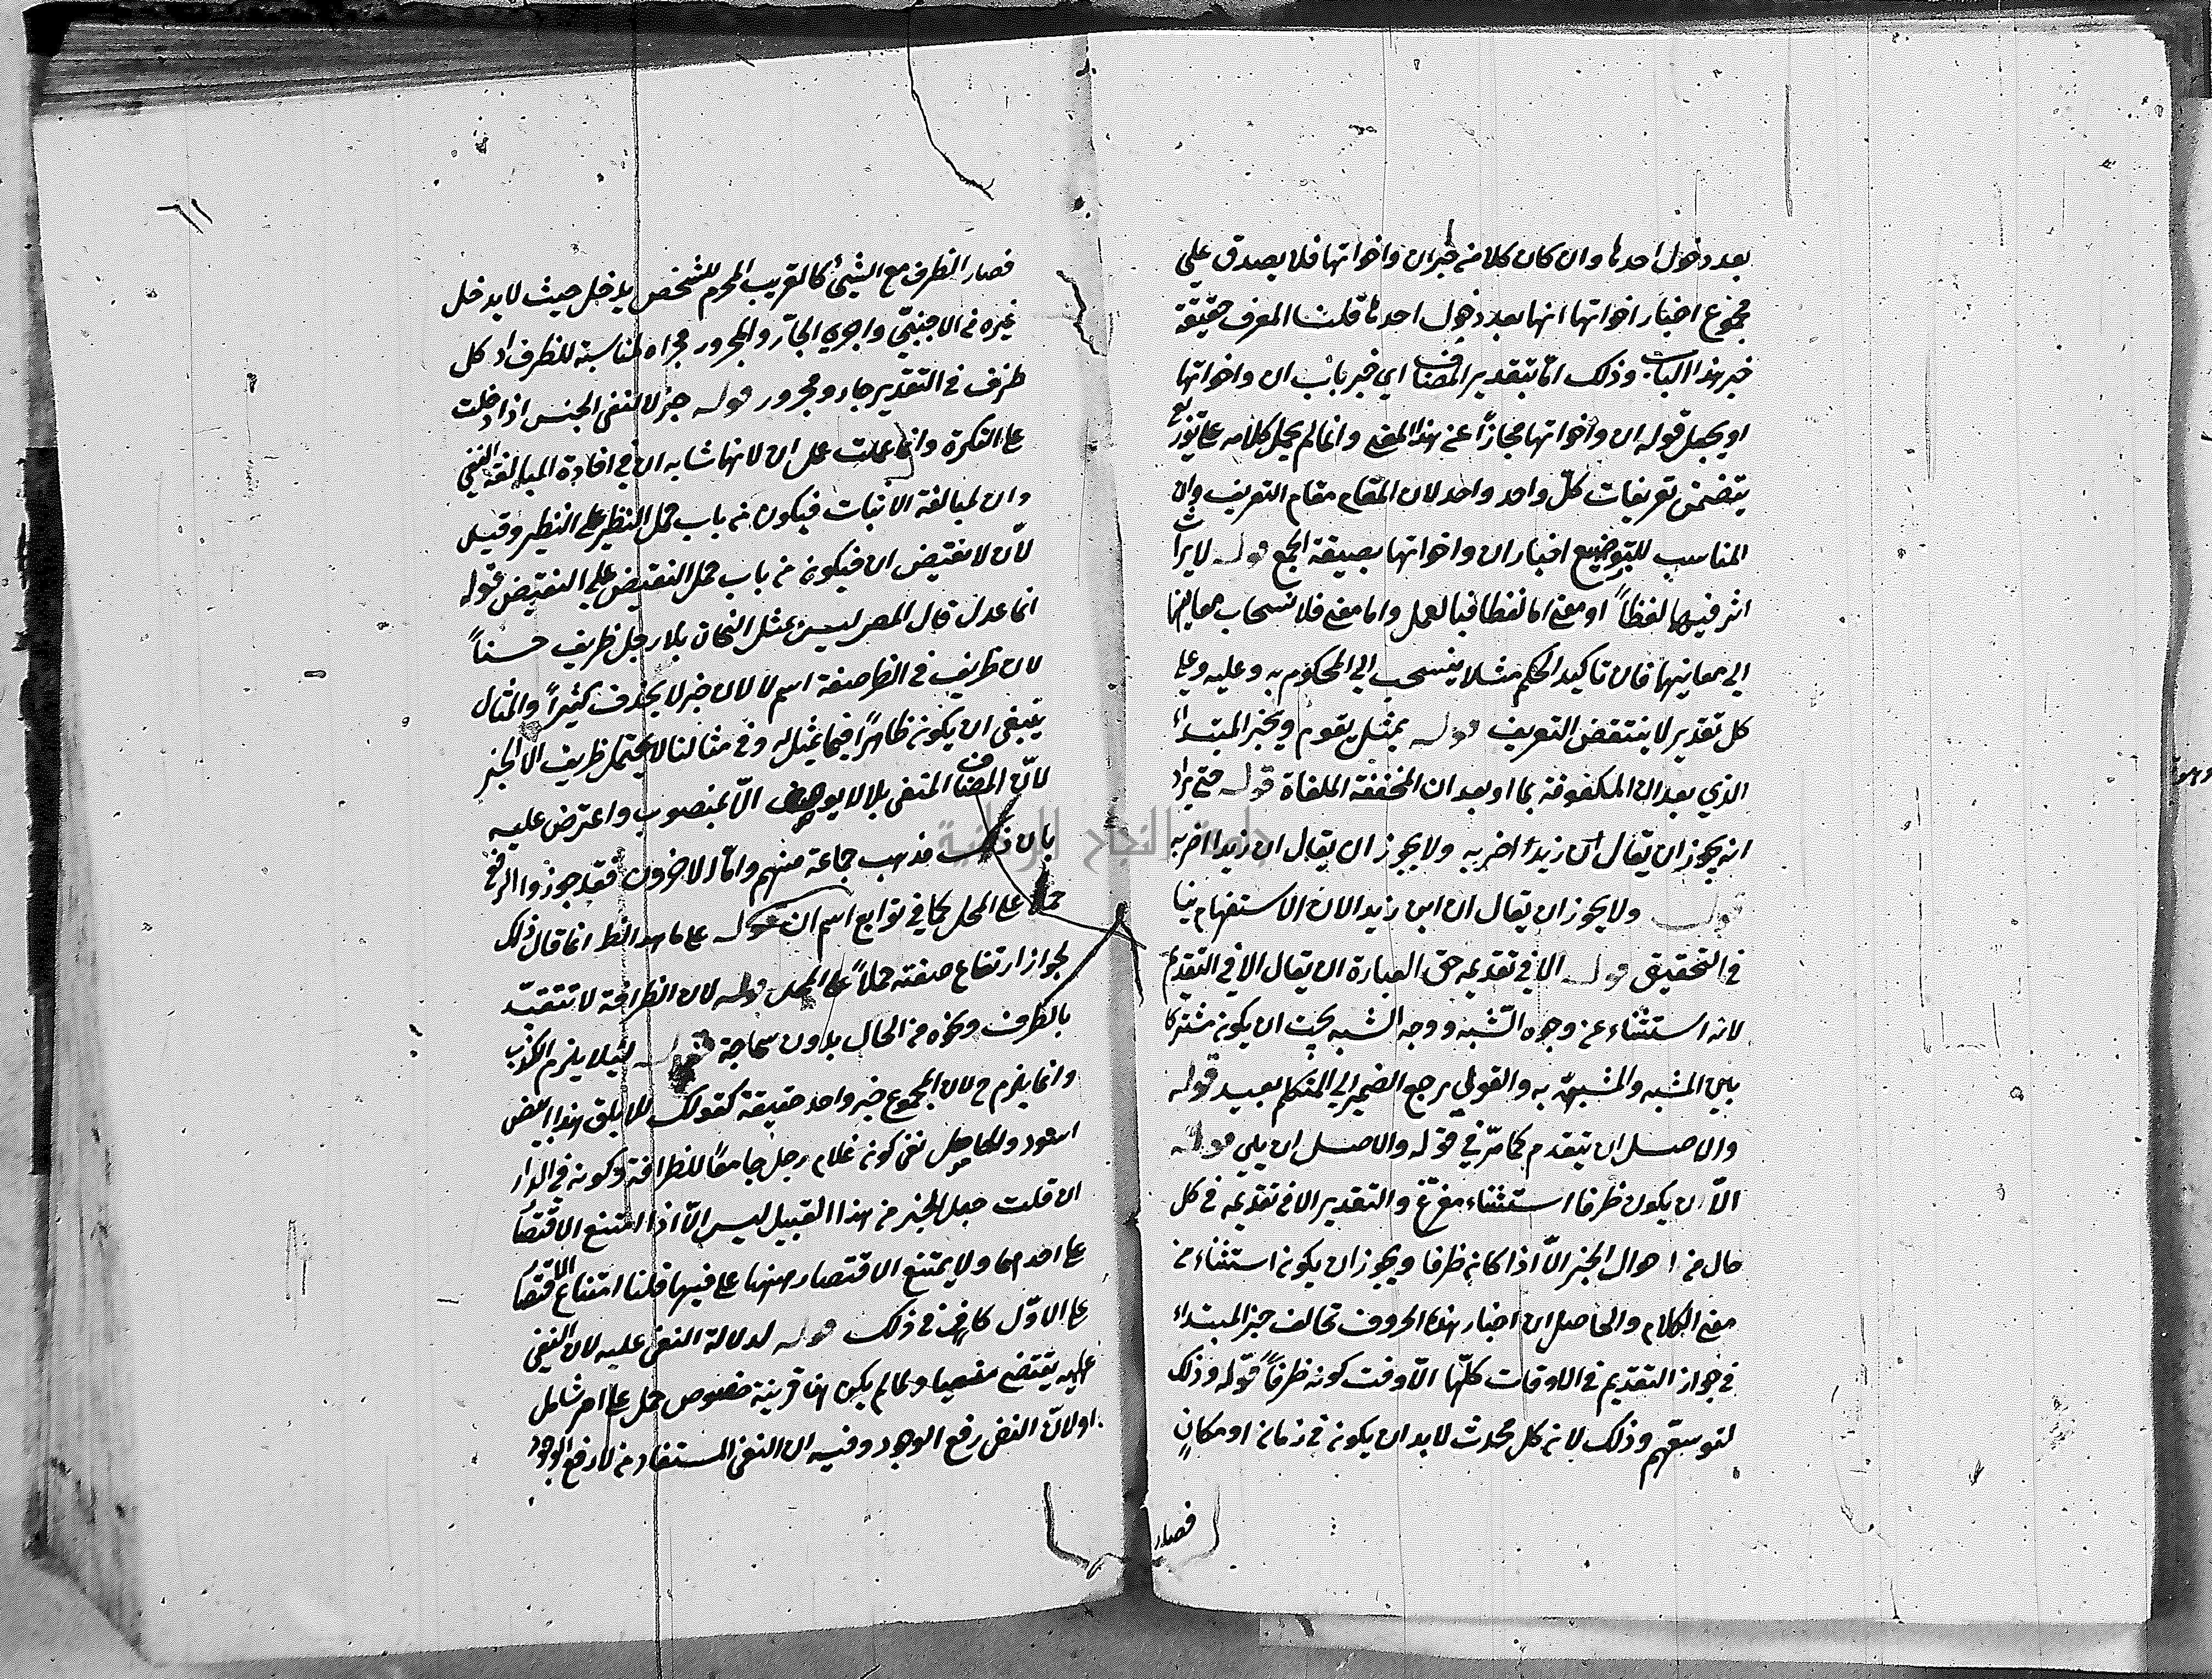 بعد دخول احدها وان كان كلا من خبر ان واخواتها فلا يصدق على
مجموع اخبار اخواتها انها بعد دخول احدها قلت المعرف حقيقة
خبر هذا الباب وذلك اما بتقدير المضاف اي خبر باب ان واخواتها
او يجعل قوله ان واخواتها مجازاً عن هذا المعنى وانما لم يحمل كلامه على توزيع
يتضمن تعريفات كلّ واحد واحد لان المقام مقام التعريف وان
المناسب للتوضيع اخبار ان واخواتها بصيغة الجمع قوله لايراث
اثر فيها لفظاً او معنى اما لفظا فبالعمل واما معنى فلانسحاب معانيها
الى معانيها فان تاكيد الحكم مثلا ينسحب الى المحكوم به وعليه وعلى
كل تقدير لا ينتقض التعريف قوله بمثل يقوم وبخبر المبتداء
الذي بعد ان المكفوفة بما او بعد ان المخففة الملغاة قوله حتى يراد
انه يجوز ان يقال ان زيداً اضربه ولا يجوز ان يقال ان زيدا اضربه
قوله ولا يجوز ان يقال ان اين زيد الان الاستفهام ينا
في التحقيق قوله الا في تقديمه حق العبارة ان يقال الا في التقدم
لانه استثناء عن وجوه الشبه ووجه الشبه يجب ان يكون مشتركا
بين المشبه والمشبه به والقول برجع الضمير الى المتكلم بعيد قوله
والاصل ان يتقدم كما مرّ في قوله والاصل ان يلي قوله
الا ان يكون ظرفا استثناء مفرغ والتقدير الا في تقديمه في كل
حال من احوال الخبر الا اذا كان ظرفا ويجوز ان يكون استثناء من
معنى الكلام والحاصل ان اخبار هذه الحروف تخالف خبر المبتداء
في جواز التقديم في الاوقات كلّها الا وقت كونه ظرفاً قوله وذلك
لتوسعهم وذلك لان كل محدث لا بد ان يكون في زمان او مكان
فصار
٦١
فصار الظرف مع الشيئ كالقريب المحرم للشخص يدخل حيث لا يدخل
غيره من الاجنبيّ واجري الجار والمجرور مجراه لمناسبة للظرف اذ كل
ظرف في التقدير جار ومجرور قوله خبر لا لنفي الجنس اذا دخلت
على النكرة وانما عملت عمل ان لانها شابه ان في افادة المبالغة النفي
وان لمبالغة الاثبات فيكون من باب حمل النظير على النظير وقيل
لانّ لا نقيض ان فيكون من باب حمل النقيض على النقيض قوله
انما عدل قال المص ليس تمثل النحاة بلا رجل ظريف حسناً
لان ظريف في الظ صفة اسم لا لان خبر لا يحذف كثيراً والمثال
ينبغي ان يكون ظاهراً فيما يمثل له وفي مثالنا لا يحتمل ظريف الا الخبر
لانّ المضاف المنفي بلا لا يوصف الا بمنصوب واعترض عليه
بان ذلك مذهب جماعة منهم وامّا الاخرون فقد جوزوا الرفع
حملا على المحل كما في توابع اسم ان قوله على ما هو الظ انما قال ذلك
لجواز ارتفاع صفته حملاً على المحل قوله لان الظرافة لا تتقيّد
بالظرف ونحوه من الحال بدون سماجة قوله لئلا يلزم الكذب
وانما يلزم ح لان المجموع خبر واحد حقيقة كقولك للابلق هذا ابيض
اسود والحاصل نفى كون غلام رجل جامعاً للظرافة وكونه في الدار
ان قلت جعل الخبر من هذا القبيل ليس الا اذا امتنع الاقتصار
على احدهما ولا يمتنع الاقتصار ههنا على فيها قلنا امتناع الاقتصار
على الاوّل كاف في ذلك قوله لدلالة النفي عليه لان النفي
عليه يقتضي منفيا ولما لم يكن هنا قرينة خصوص حمل على امر شامل
او لانّ النفي رفع الوجود وفيه ان النفي المستفاد من لا رفع الوجود
جامعة النجاح الوطنية